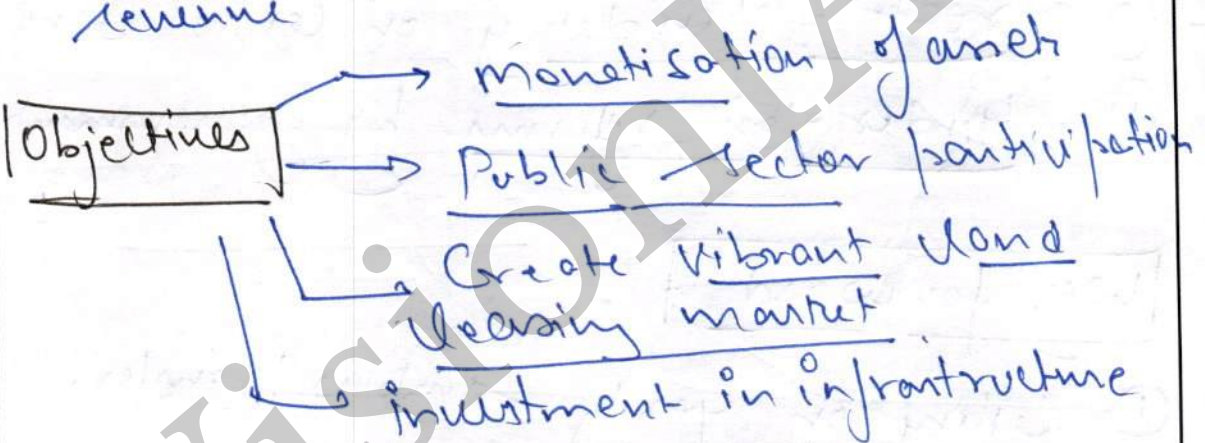 revenue
Objectives
→ monetisation of assets
→ Public sector participation
→ Create vibrant land
leasing market
→ investment in infrastructure
VisionIA